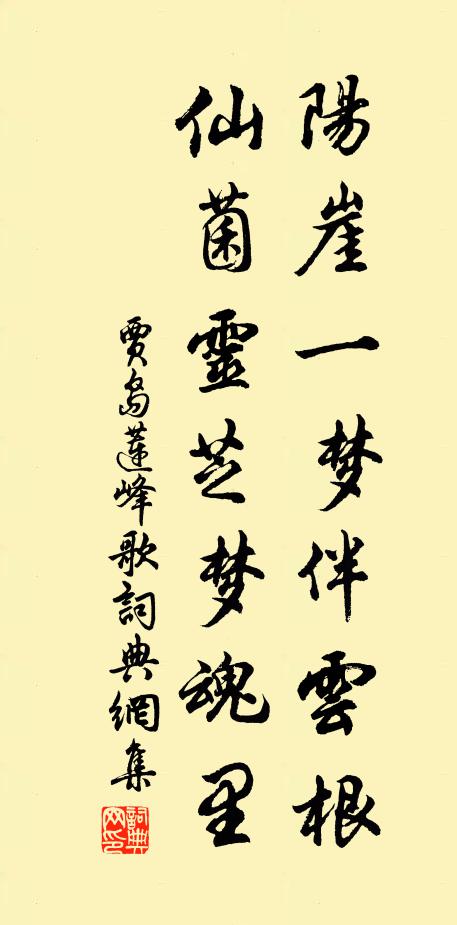 陽崖一梦伴雲根
仙菌靈芝梦魂里
賈島蓮峰歌詞典網集
詞典网印